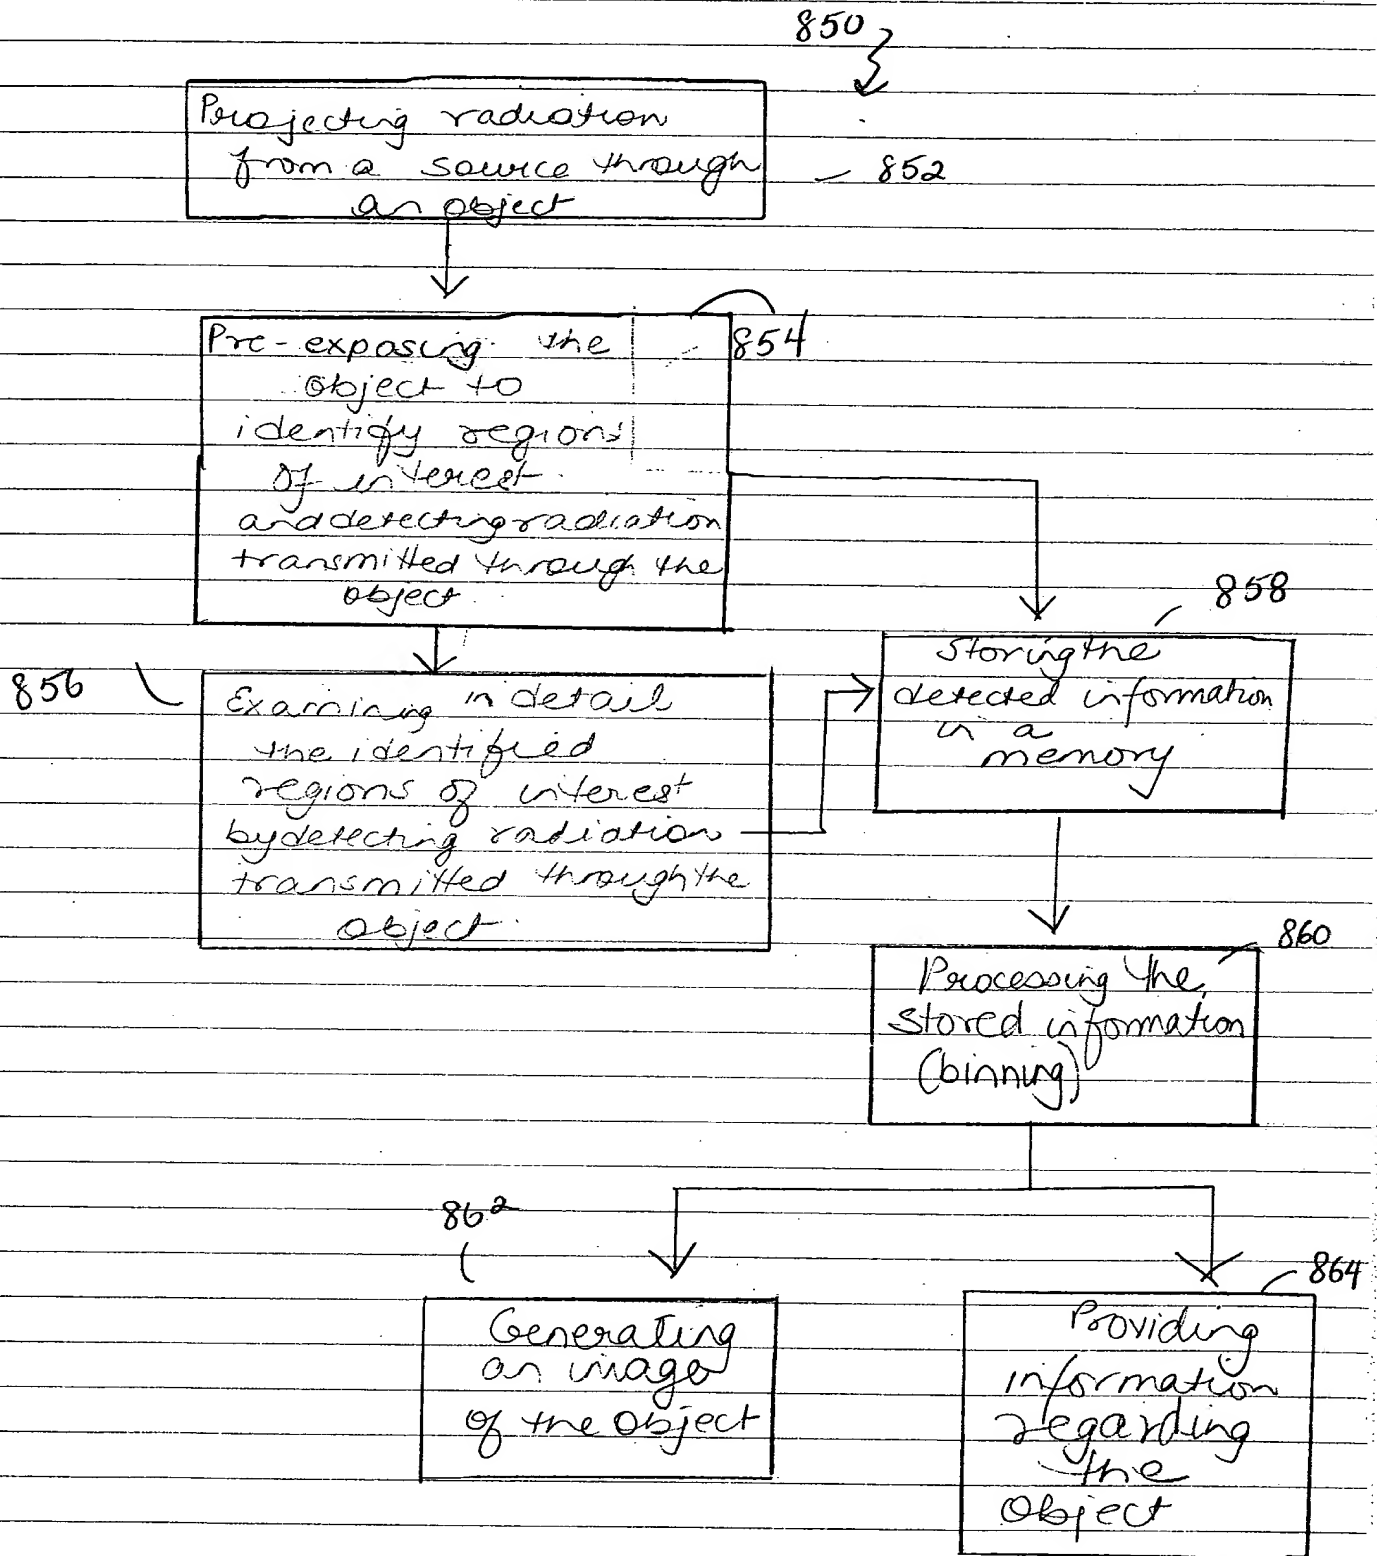 850
Projecting radiation
from a source through
an object
852
Pre-exposing the
object to
identify regions
of interest
and detecting radiation
transmitted through the
object.
854
856
Examining in detail
the identified
regions of interest
by detecting radiation
transmitted through the
object.
858
Storing the
detected information
in a
memory
860
Processing the
stored information
(binning)
862
Generating
an image
of the object
864
Providing
information
regarding
the
object